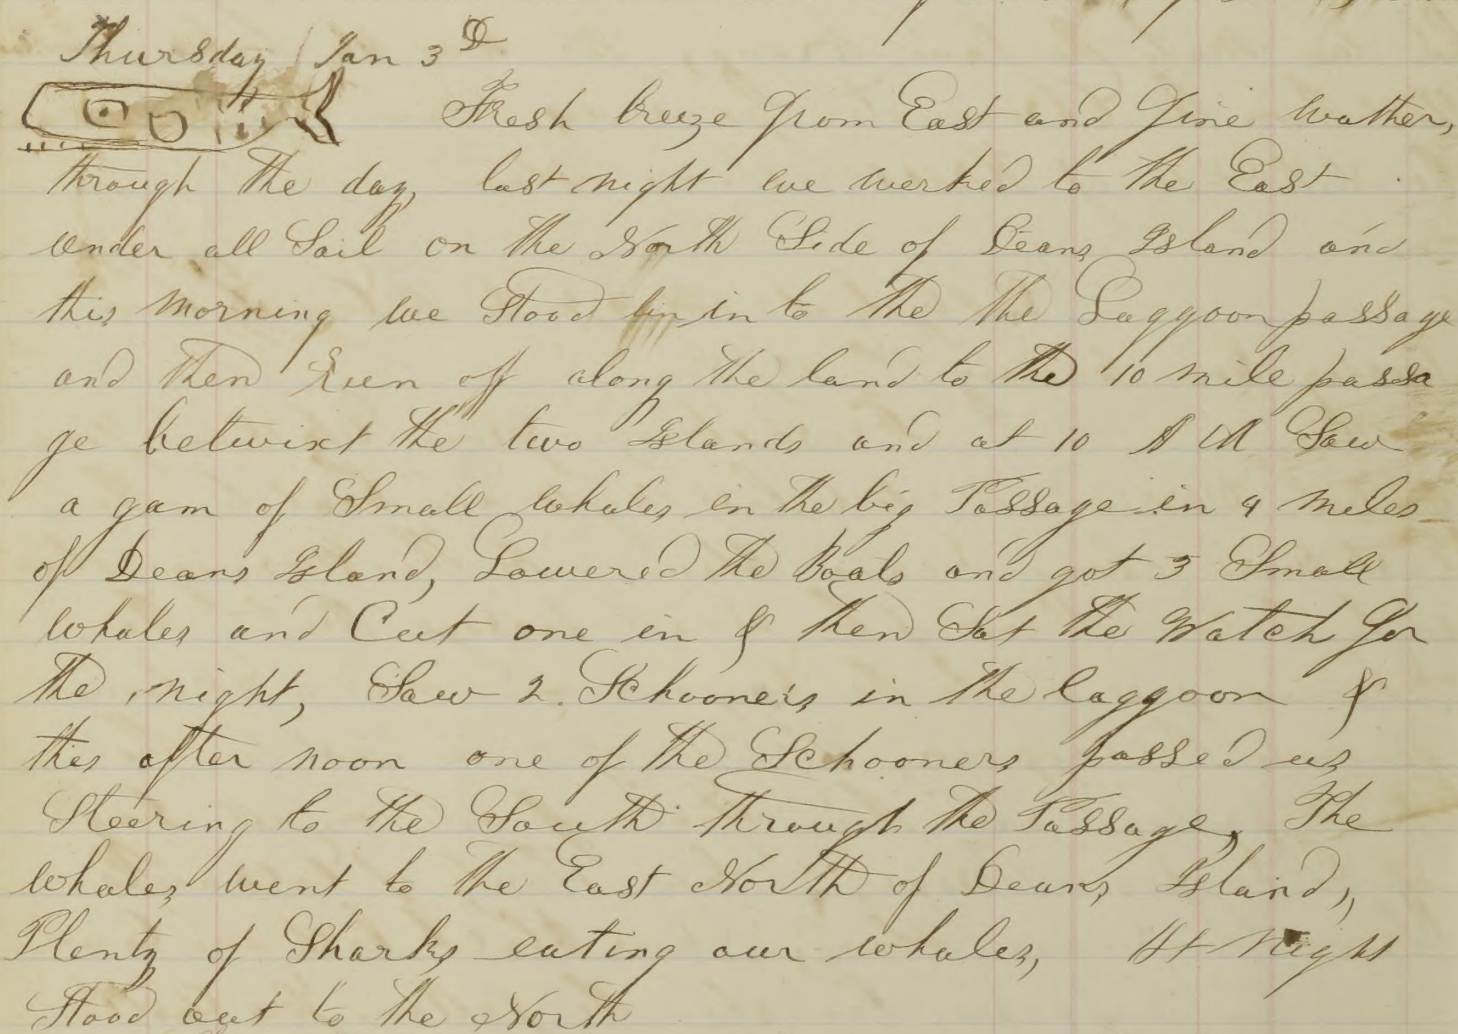 Thursday Jan 3D
Fresh breeze from East and fine wather,
through the day, last night we werked to the East
under all Sail on the North Side of Deans Island and
this morning we Stood in to the the Laggoon passage
and then Run off along the land to the 10 mile passa
ge betwixt the two Islands and at 10 A M Saw
a gam of Small whales in the big Passage in 4 miles
of Deans Island, Lowered the Boats and got 3 Small
whales and Cut one in & then Sat the Watch for
the night, Saw 2 Schooners in the laggoon &
this after noon one of the Schooners passed us
Steering to the South through the Passage, The
whales went to the East North of Deans Island,
Plenty of Sharks eating our whales, At night
Stood out to the North